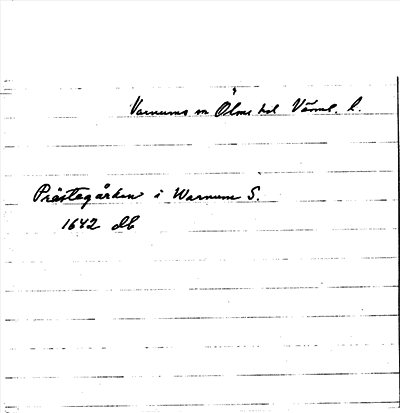 Varnums sn Ölme hd Värml. l.
Prästegården i Warnum S.
1642 db